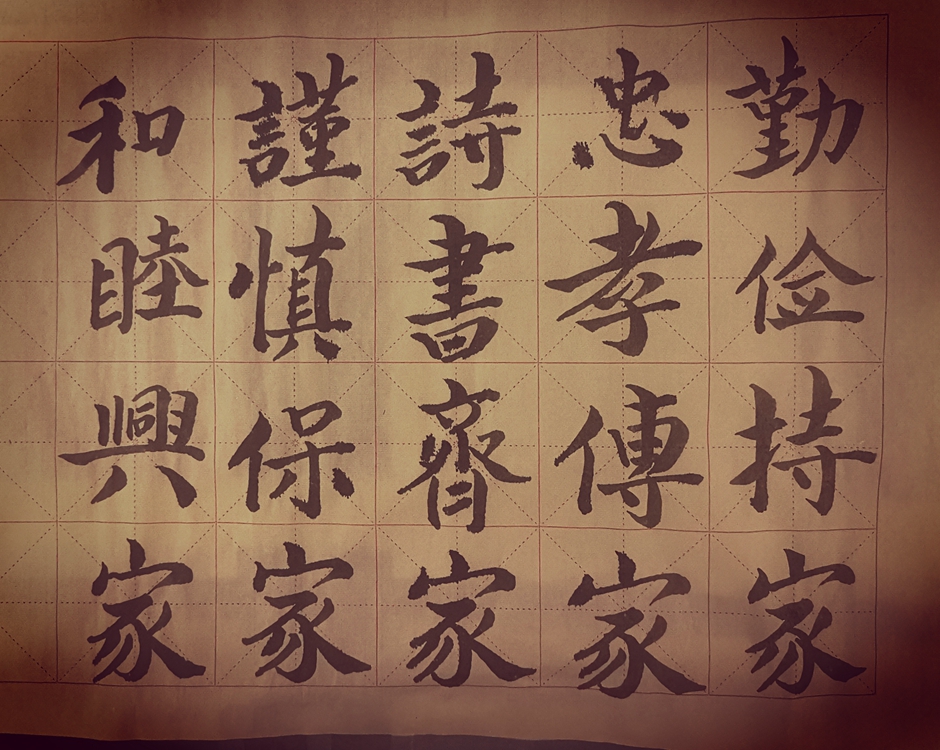 勤俭持家
忠孝傳家
詩書齊家
謹慎保家
和睦興家